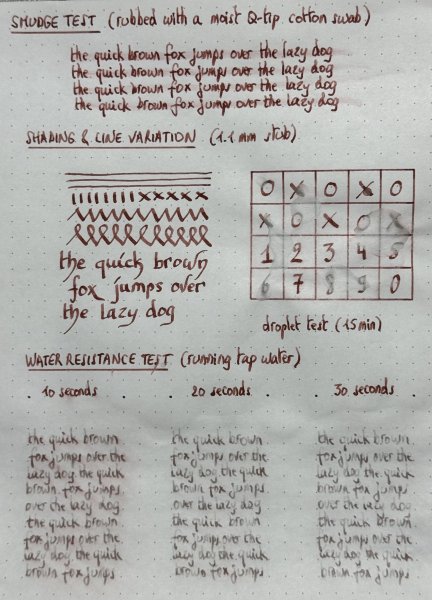 SMUDGE TEST (rubbed with a moist Q-tip cotton swab)
the quick brown fox jumps over the lazy dog
the quick brown fox jumps over the lazy dog
the quick brown fox jumps over the lazy dog
the quick brown fox jumps over the lazy dog
SHADING & LINE VARIATION (1.1 mm stub)
the quick brown
fox jumps over
the lazy dog
O X O X O
X O X O X
1 2 3 4 5
6 7 8 9 0
droplet test (15 min)
WATER RESISTANCE TEST (running tap water)
10 seconds . 20 seconds . 30 seconds
the quick brown
fox jumps over the
lazy dog. the quick
brown fox jumps
over the lazy dog.
the quick brown
fox jumps over the
lazy dog the quick
brown fox jumps
the quick brown
fox jumps over the
lazy dog the quick
brown fox jumps
over the lazy dog
the quick brown
fox jumps over the
lazy dog the quick
brown fox jumps
the quick brown
fox jumps over the
lazy dog the quick
brown fox jumps
over the lazy dog
the quick brown
fox jumps over the
lazy dog the quick
brown fox jumps